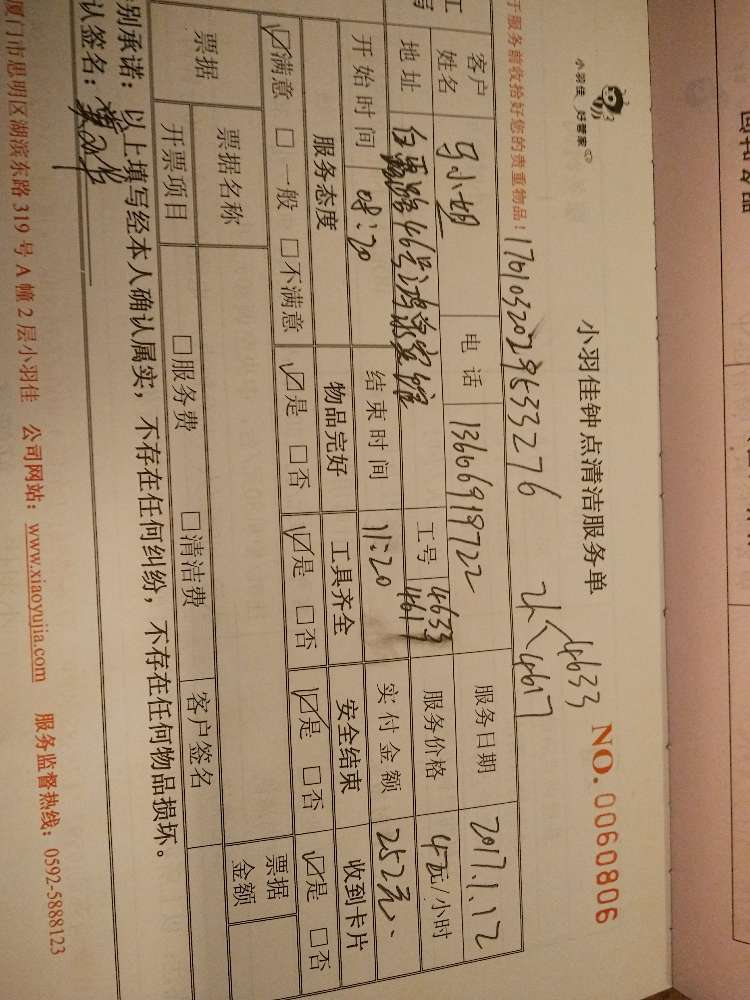 小羽佳 好管家
小羽佳钟点清洁服务单
NO.0060806
4633
2人 4617
于服务前收拾好您的贵重物品！
客户姓名 马小姐 电话 13666919722 服务日期 2017.1.12
地址 工号 4633 4617 服务价格 42元/小时
开始时间 结束时间 11:20 实付金额 252元
服务态度 物品完好 工具齐全 安全结束 收到卡片
☑满意 □一般 □不满意 ☑是 □否 ☑是 □否 ☑是 □否 ☑是 □否
票据 票据名称 票据金额
开票项目 □服务费 □清洁费 客户签名
别承诺：以上填写经本人确认属实，不存在任何纠纷，不存在任何物品损坏。
认签名：
厦门市思明区湖滨东路319号A幢2层小羽佳 公司网站：www.xiaoyujia.com 服务监督热线：0592-5888123